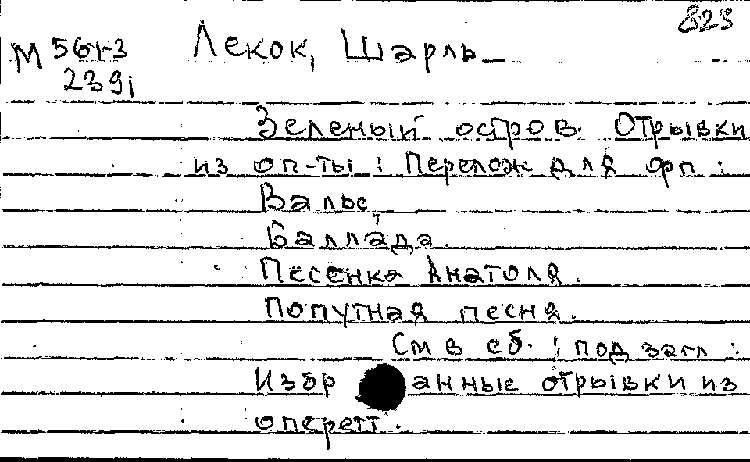 823
М 561-3 Лекок, Шарль
239i
Зеленый остров. Отрывки
из оп-ты : Перелож для фрп :
Вальс.
Баллада.
Песенка Анатоля.
Попутная песня.
См в сб. : под загл :
Избр анные отрывки из
оперетт.